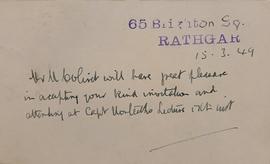 65 Brighton Sq.
RATHGAR
15.3.49
Mr M will have great pleasure
in accepting your kind invitation and
attending at Capt Lecture inst